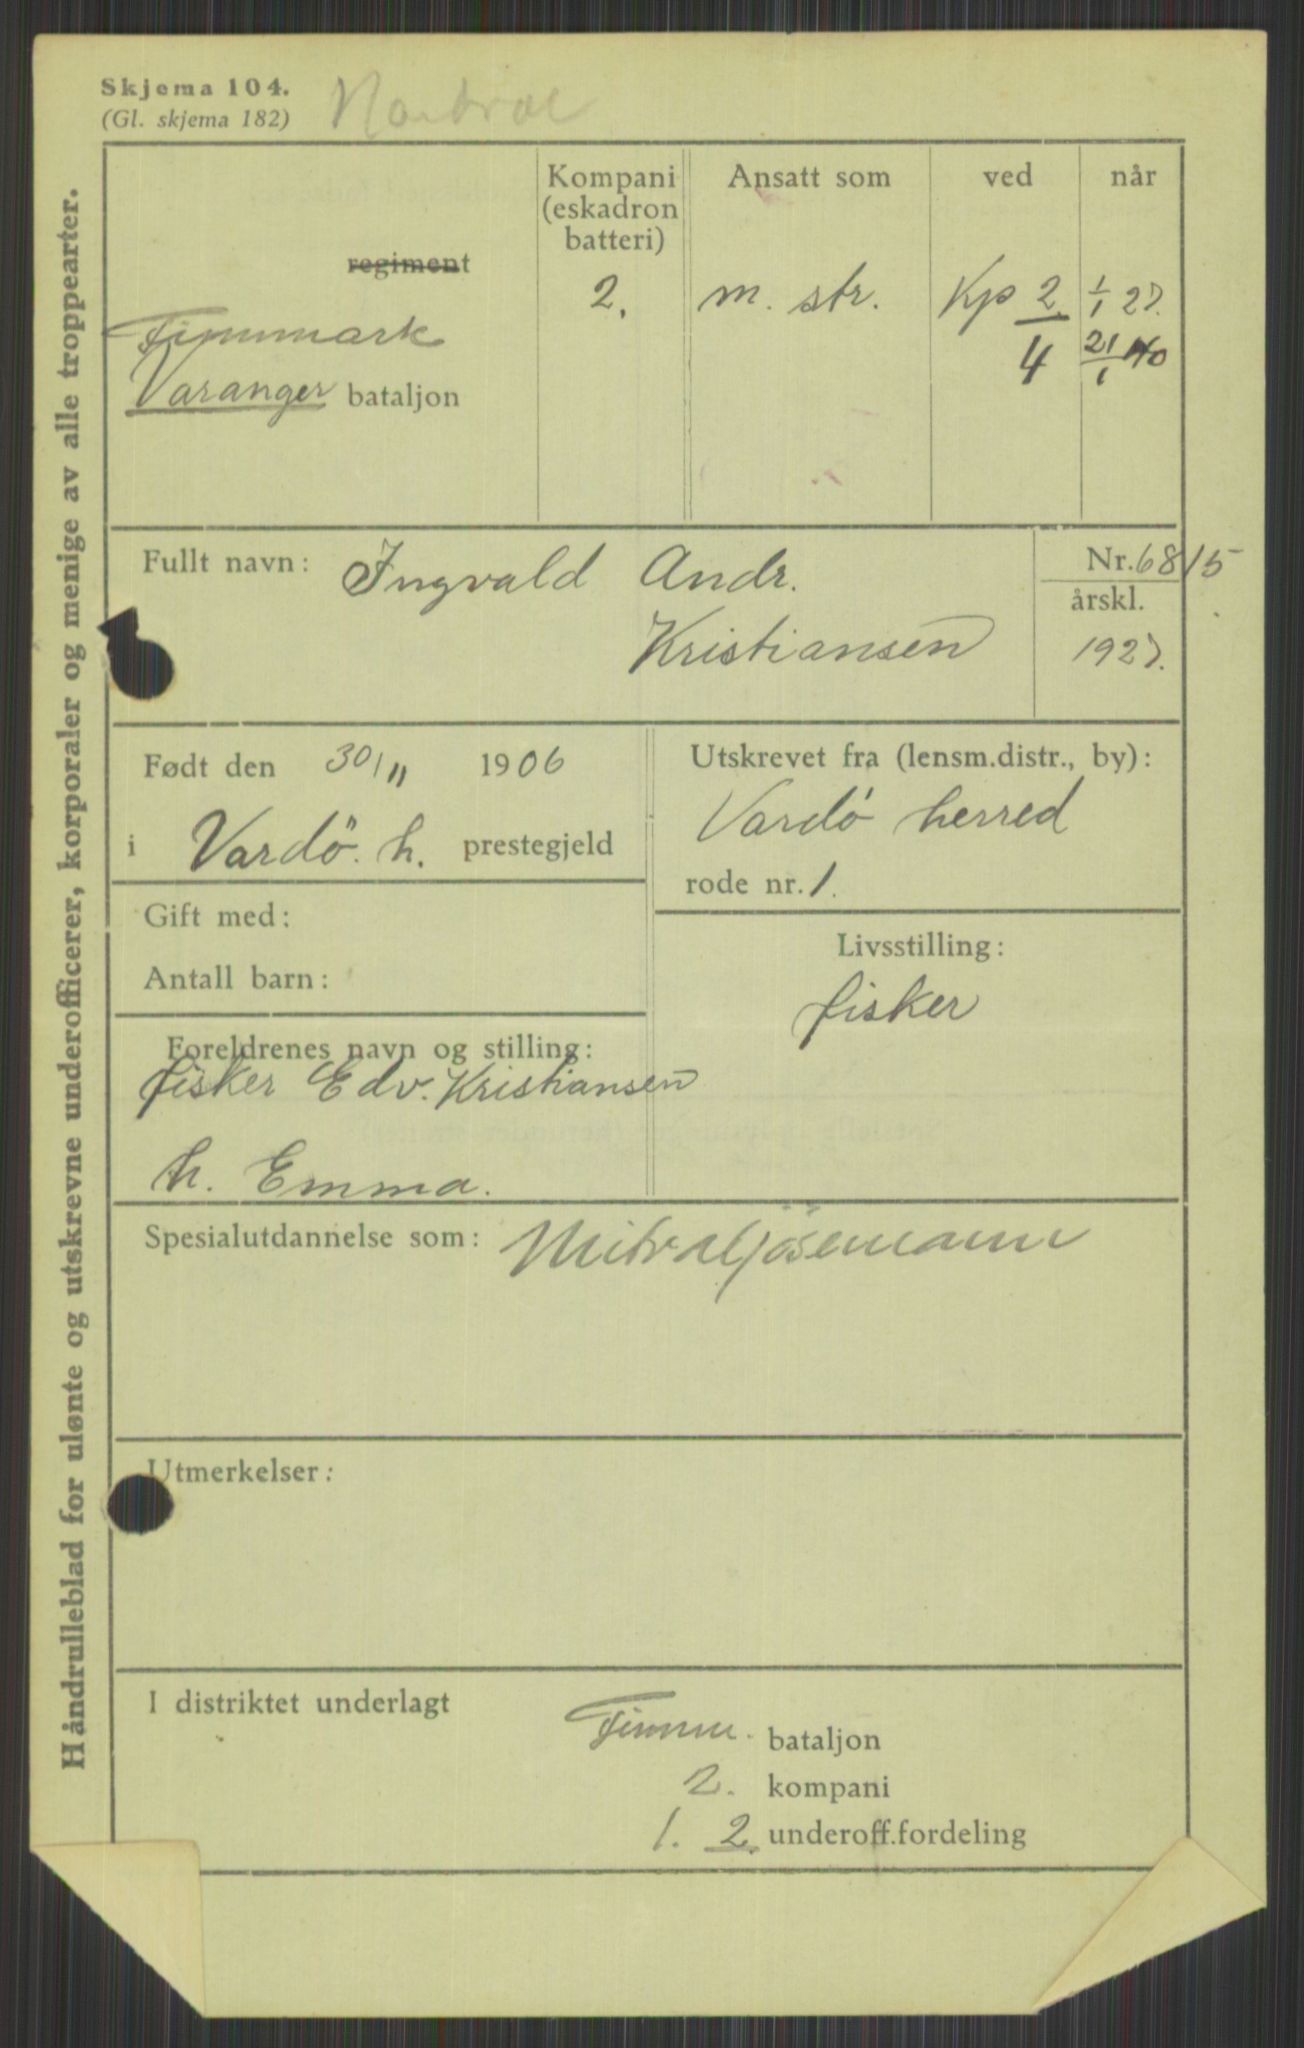 Skjema 104.
(Gl. skjema 182)
Håndrulleblad for ulønte og utskrevne underofficerer, korporaler og menige av alle troppearter.
Kompani (eskadron batteri)
Ansatt som
ved
når
regiment
2. m. str. Kp 2 1/1 27.
Finnmark
4 21/1 40
Varanger bataljon
Fullt navn: Ingvald Andr.
Kristiansen
Nr. 6815
årskl.
1927.
Født den 30/11 1906
i Vardö. h. prestegjeld
Utskrevet fra (lensm.distr., by):
Vardö herred
rode nr. 1.
Gift med:
Antall barn:
Livsstilling:
fisker
Foreldrenes navn og stilling:
fisker Edv. Kristiansen
h. Emma.
Spesialutdannelse som: Mitraljösemann
Utmerkelser:
I distriktet underlagt
Finnm. bataljon
2. kompani
1. 2. underoff.fordeling